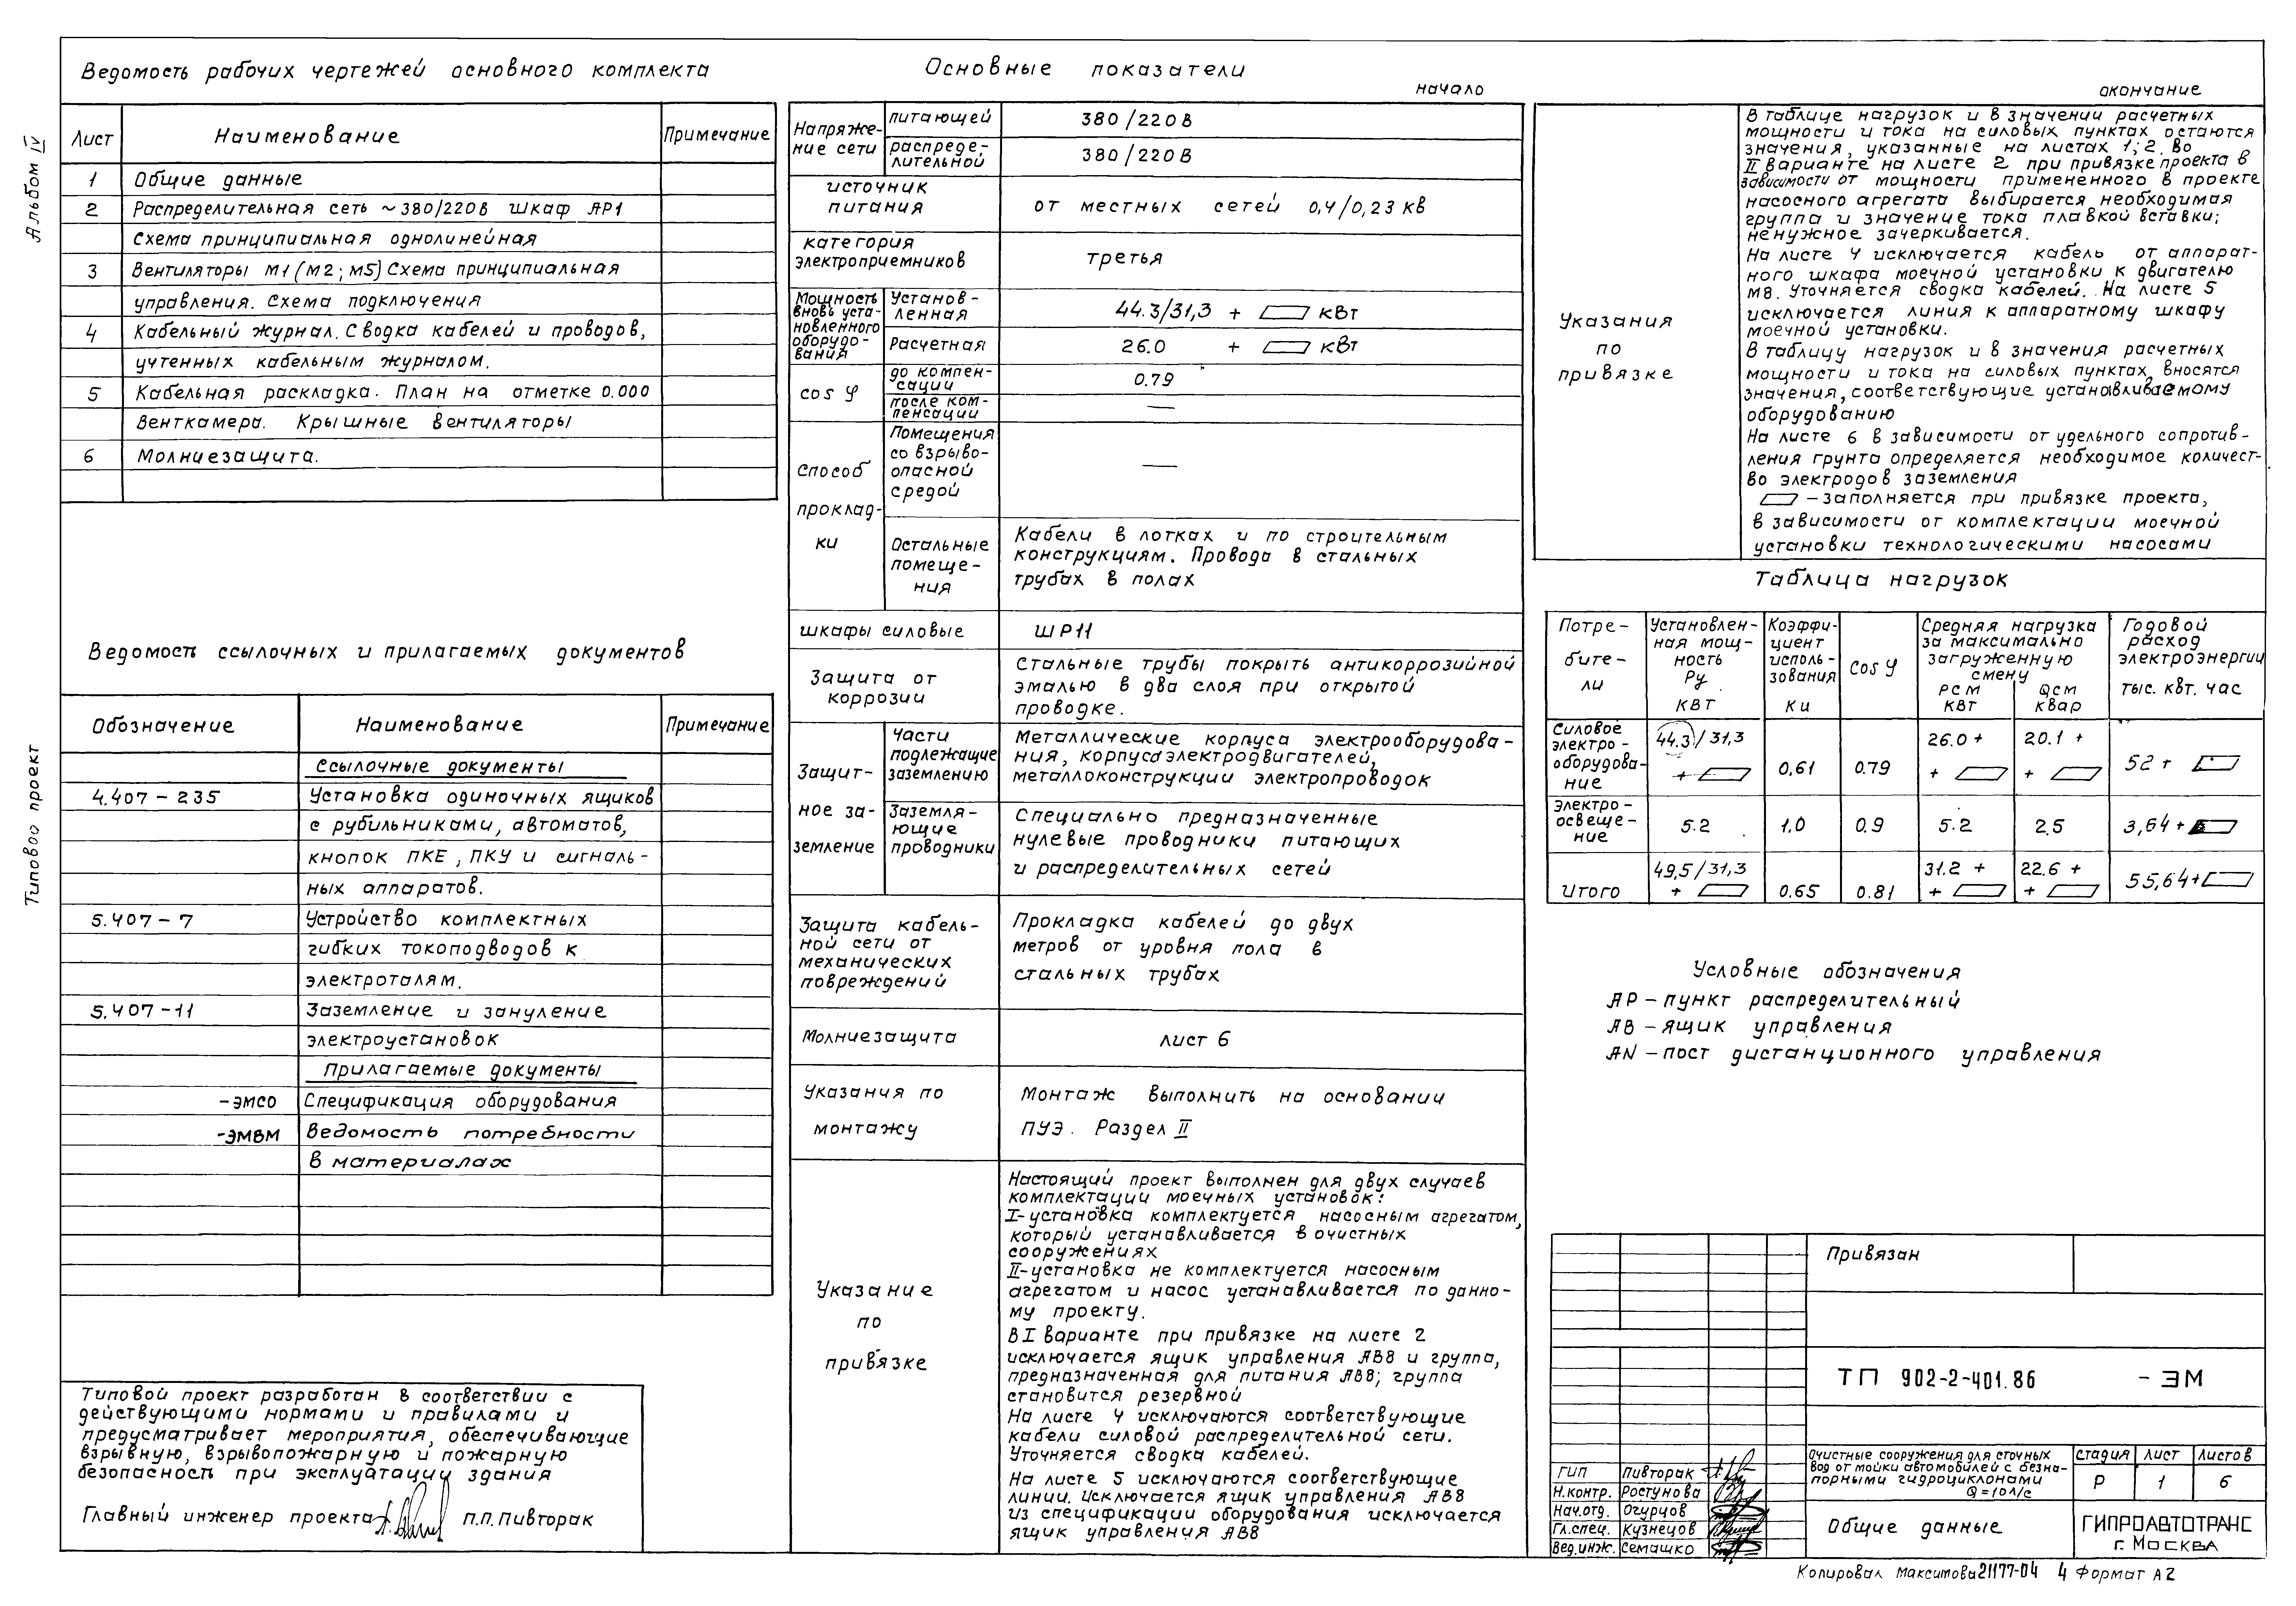 Альбом IV
Типовой проект
Ведомость рабочих чертежей основного комплекта
Лист Наименование Примечание
1 Общие данные
2 Распределительная сеть ~380/220В шкаф АР1
Схема принципиальная однолинейная
3 Вентиляторы М1 (М2; М5) Схема принципиальная
управления. Схема подключения
4 Кабельный журнал. Сводка кабелей и проводов,
учтенных кабельным журналом.
5 Кабельная раскладка. План на отметке 0.000
Венткамера. Крышные вентиляторы
6 Молниезащита.
Ведомость ссылочных и прилагаемых документов
Обозначение Наименование Примечание
Ссылочные документы
4.407-235 Установка одиночных ящиков
с рубильниками, автоматов,
кнопок ПКЕ, ПКУ и сигналь-
ных аппаратов.
5.407-7 Устройство комплектных
гибких токоподводов к
электроталям.
5.407-11 Заземление и зануление
электроустановок
Прилагаемые документы
-ЭМСО Спецификация оборудования
-ЭМВМ Ведомость потребности
в материалах
Типовой проект разработан в соответствии с
действующими нормами и правилами и
предусматривает мероприятия, обеспечивающие
взрывную, взрывопожарную и пожарную
безопасность при эксплуатации здания
Главный инженер проекта П.П. Пивторак
Основные показатели
начало
Напряже-
ние сети
питающей 380/220В
распреде-
лительной 380/220В
источник
питания от местных сетей 0,4/0,23 кв
категория
электроприемников третья
Мощность
вновь уста-
новленного
оборудо-
вания
Установ-
ленная 44.3/31,3 + кВт
Расчетная 26.0 + кВт
cos φ
до компен-
сации 0.79
после ком-
пенсации —
Способ
проклад-
ки
Помещения
со взрыво-
опасной
средой —
Остальные
помеще-
ния
Кабели в лотках и по строительным
конструкциям. Провода в стальных
трубах в полах
шкафы силовые ШР11
Защита от
коррозии
Стальные трубы покрыть антикоррозийной
эмалью в два слоя при открытой
проводке.
Защит-
ное за-
земление
Части
подлежащие
заземлению
Металлические корпуса электрооборудова-
ния, корпуса электродвигателей,
металлоконструкции электропроводок
Заземля-
ющие
проводники
Специально предназначенные
нулевые проводники питающих
и распределительных сетей
Защита кабель-
ной сети от
механических
повреждений
Прокладка кабелей до двух
метров от уровня пола в
стальных трубах
Молниезащита лист 6
Указания по
монтажу
Монтаж выполнить на основании
ПУЭ. Раздел II
Указание
по
привязке
Настоящий проект выполнен для двух случаев
комплектации моечных установок:
I-установка комплектуется насосным агрегатом,
который устанавливается в очистных
сооружениях
II-установка не комплектуется насосным
агрегатом и насос устанавливается по данно-
му проекту.
В I варианте при привязке на листе 2
исключается ящик управления АВ8 и группа,
предназначенная для питания АВ8; группа
становится резервной
На листе 4 исключаются соответствующие
кабели силовой распределительной сети.
Уточняется сводка кабелей.
На листе 5 исключаются соответствующие
линии. Исключается ящик управления АВ8
из спецификации оборудования исключается
ящик управления АВ8
окончание
Указания
по
привязке
В таблице нагрузок и в значении расчетных
мощности и тока на силовых пунктах остаются
значения, указанные на листах 1; 2. Во
II варианте на листе 2 при привязке проекта в
зависимости от мощности примененного в проекте
насосного агрегата выбирается необходимая
группа и значение тока плавкой вставки;
ненужное зачеркивается.
На листе 4 исключается кабель от аппарат-
ного шкафа моечной установки к двигателю
М8. Уточняется сводка кабелей. На листе 5
исключается линия к аппаратному шкафу
моечной установки.
В таблицу нагрузок и в значения расчетных
мощности и тока на силовых пунктах вносятся
значения, соответствующие устанавливаемому
оборудованию
На листе 6 в зависимости от удельного сопротив-
ления грунта определяется необходимое количест-
во электродов заземления
— заполняется при привязке проекта,
в зависимости от комплектации моечной
установки технологическими насосами
Таблица нагрузок
Потре-
бите-
ли
Установлен-
ная мощ-
ность
Ру
кВт
Коэффи-
циент
исполь-
зования
Ки
Cos φ
Средняя нагрузка
за максимально
загруженную
смену
Рсм
кВт
Qсм
квар
Годовой
расход
электроэнергии
тыс. квт. час
Силовое
электро-
оборудова-
ние
44.3/31,3
+
0.61 0.79
26.0 +
+
20.1 +
+
52 +
Электро-
освеще-
ние
5.2 1.0 0.9 5.2 2.5 3,64+
Итого
49,5/31,3
+
0.65 0.81
31.2 +
+
22.6 +
+
55,64+
Условные обозначения
АР – пункт распределительный
АВ – ящик управления
AN – пост дистанционного управления
Привязан
ТП 902-2-401.86 - ЭМ
Очистные сооружения для сточных
вод от мойки автомобилей с безна-
порными гидроциклонами
Q=10л/с
стадия лист листов
Р 1 6
Общие данные
ГИПРОАВТОТРАНС
г. Москва
ГИП Пивторак
Н.контр. Ростунова
Нач.отд. Огурцов
Гл.спец. Кузнецов
Вед.инж. Семашко
Копировал Максимова 21177-04 4 Формат А2